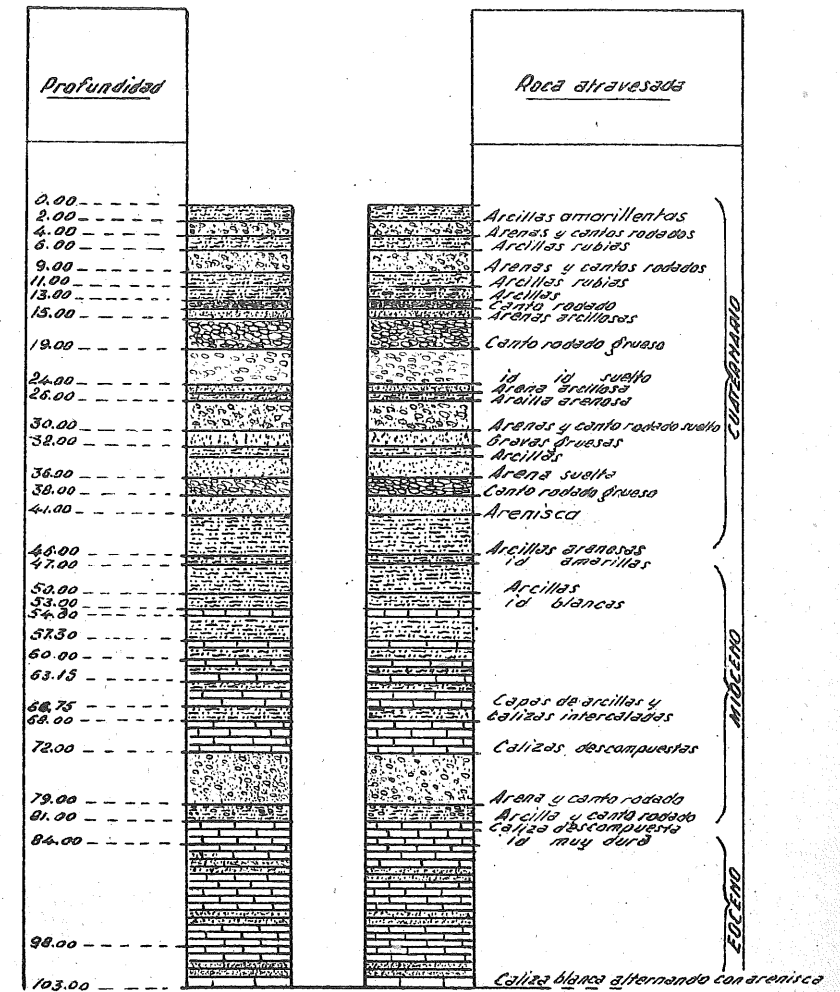 Profundidad
Roca atravesada
0.00
2.00
4.00
6.00
9.00
11.00
13.00
15.00
19.00
24.00
26.00
30.00
32.00
36.00
38.00
41.00
46.00
47.00
50.00
53.00
54.30
57.30
60.00
63.15
68.75
69.00
72.00
79.00
81.00
84.00
98.00
103.00
Arcillas amarillentas
Arenas y cantos rodados
Arcillas rubias
Arenas y cantos rodados
Arcillas rubias
Arcillas
Canto rodado
Arenas arcillosas
Canto rodado grueso
id id suelto
Arena arcillosa
Arcilla arenosa
Arenas y canto rodado suelto
Gravas gruesas
Arcillas
Arena suelta
Canto rodado grueso
Arenisca
Arcillas arenosas
id amarillas
Arcillas
id blancas
Capas de arcillas y
calizas intercaladas
Calizas descompuestas
Arena y canto rodado
Arcilla y canto rodado
Caliza descompuesta
id muy dura
Caliza blanca alternando con arenisca
CUATERNARIO
MIOCENO
EOCENO